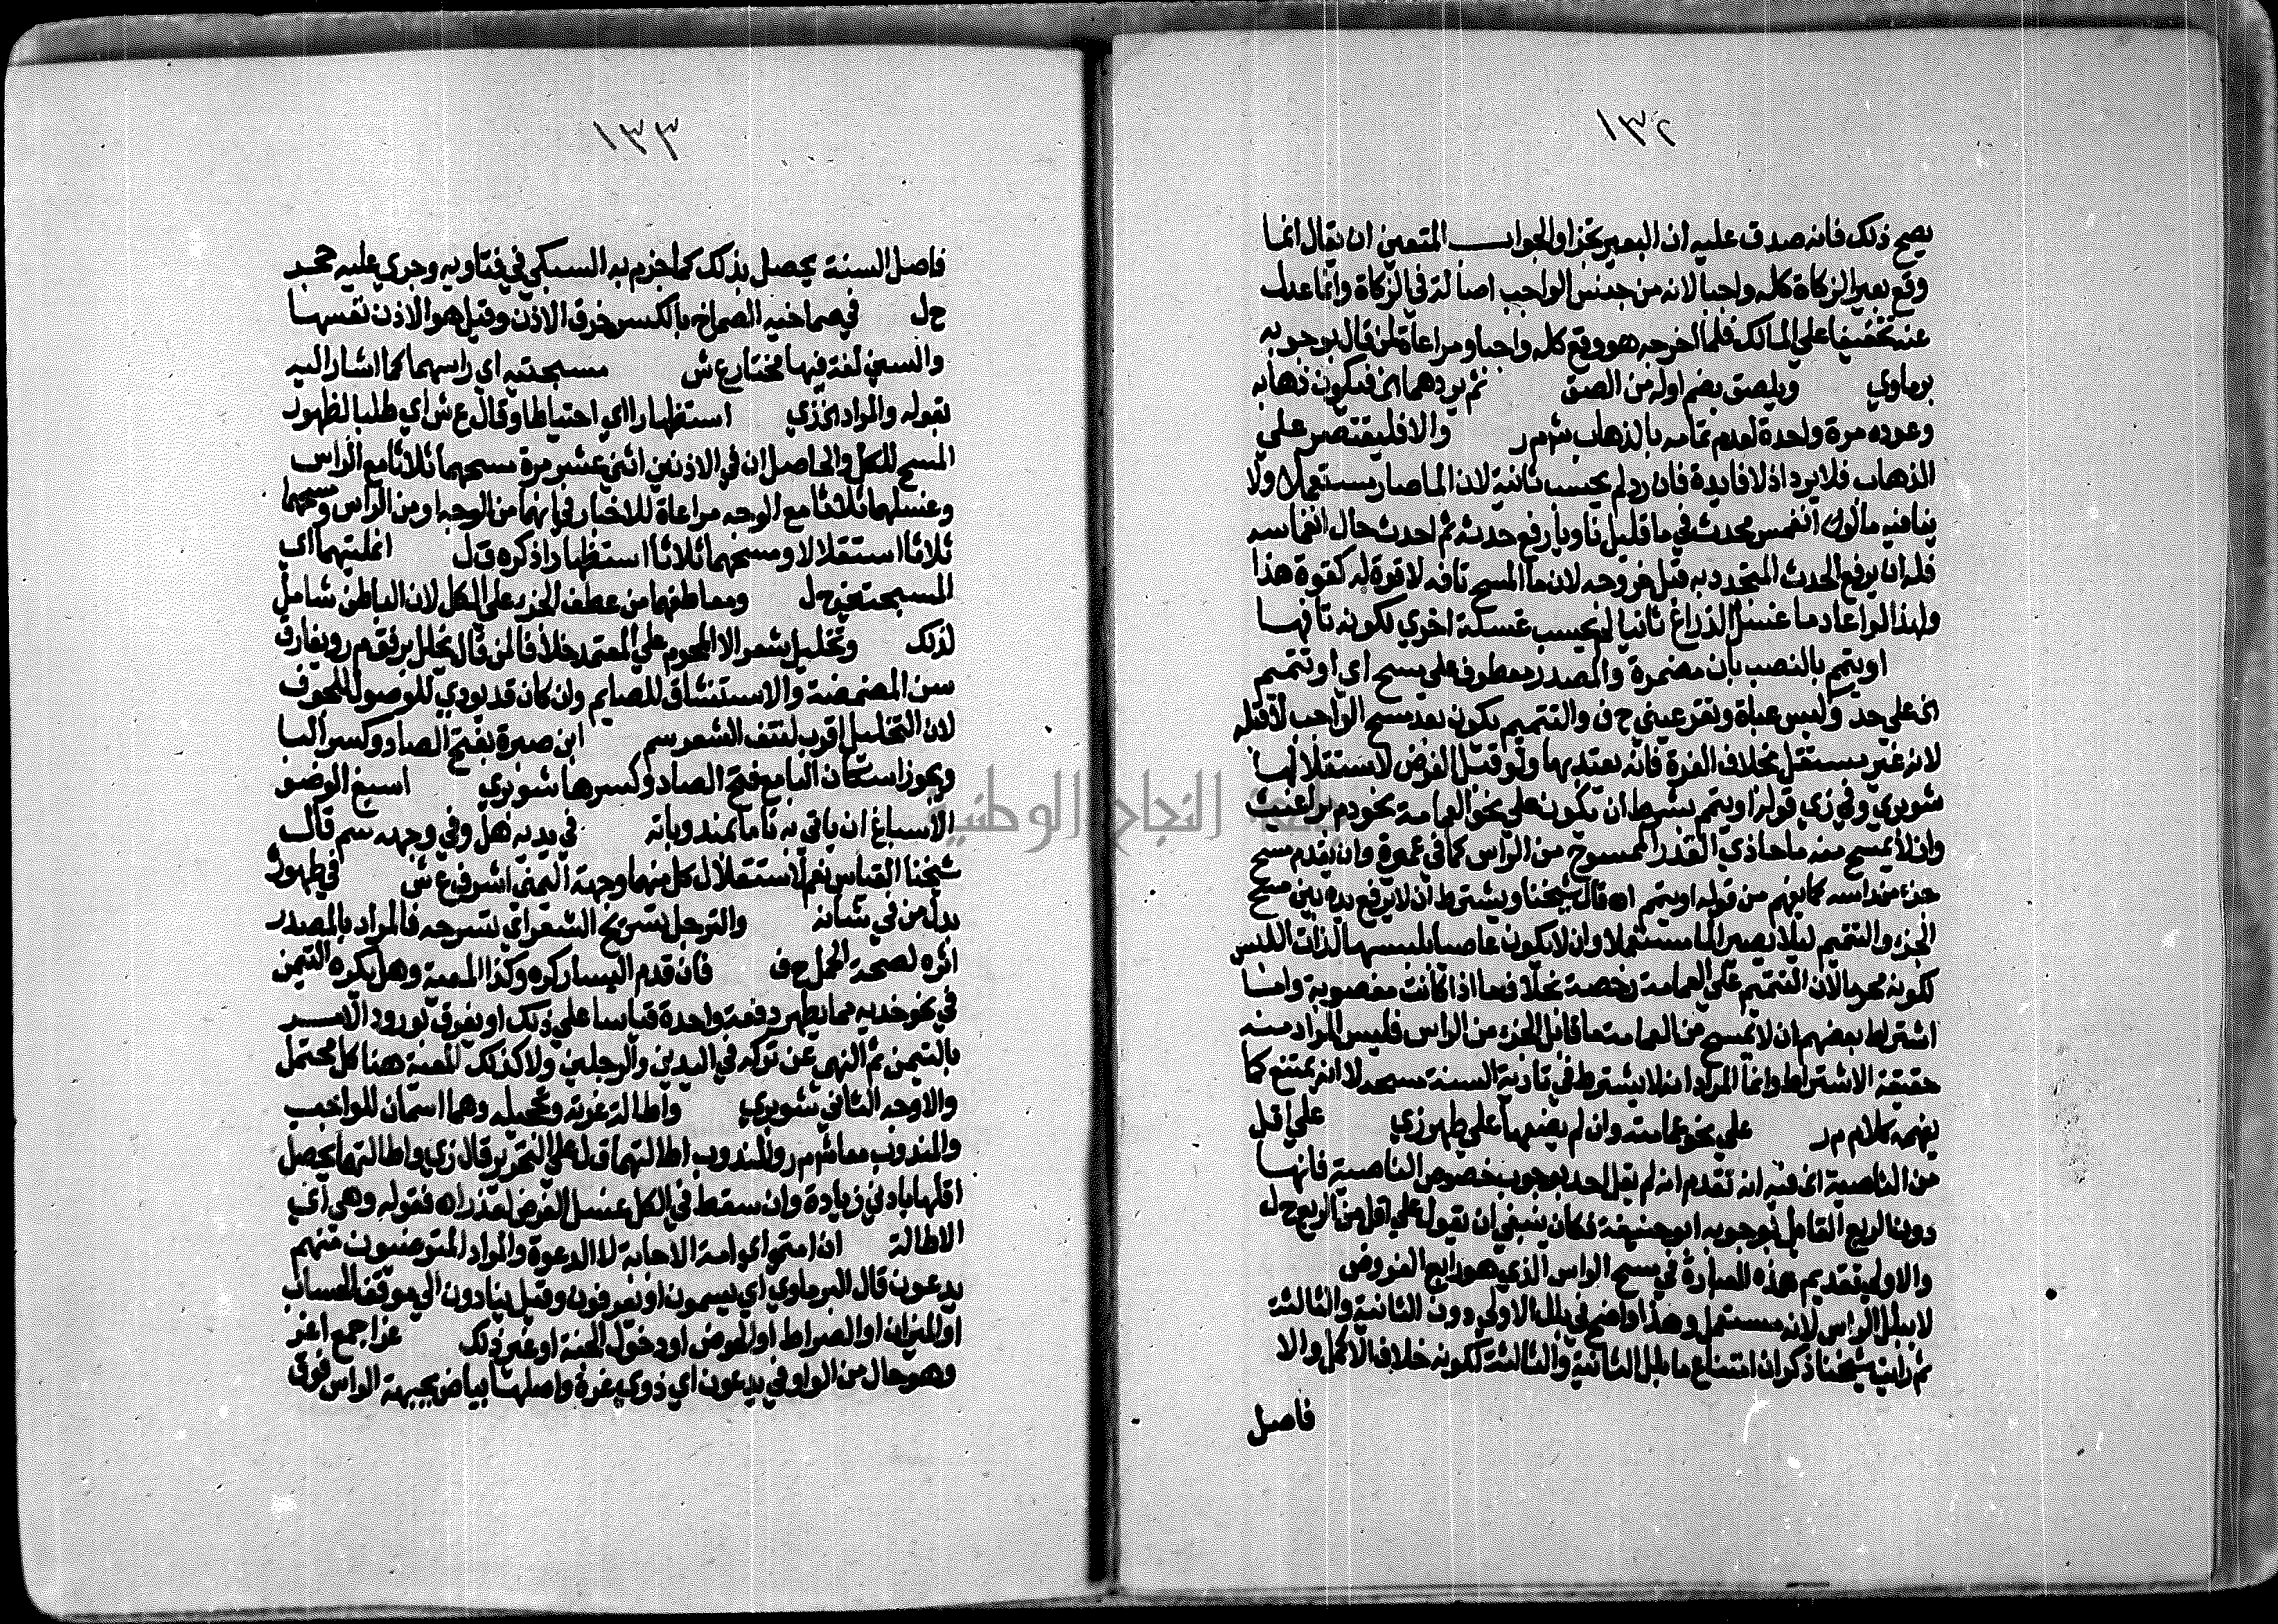 ١٣٢
يصح ذلك فانه صدق عليه ان البعير يتجزا والجواب المتعين ان يقال انما
وقع بعير الزكاة كله واجبا لانه من جنس الواجب اصالة في الزكاة وانما عدل
عنه تخفيفا علي المالك فلما اخرجه هو وقع كله واجبا ومراعاة لمن قال بوجوبه
برماوي ويلصق بضم اوله من الصق ثم يردهما اي فيكون ذهابه
وعوده مرة واحدة لعدم تمامه بالذهاب ش م ر والا فليقتصر علي
الذهاب فلا يرد اذ لا فايدة فان رد لم يحسب ثانية لان الما صار مستعملا ولا
ينافيه ما لو انغمس محدث في ما قليل ناويا رفع حدثه ثم احدث حال انغماسه
فله ان يرفع الحدث المتجدد به قبل خروجه لان ما المسح تافه لا قوة له كقوة هذا
ولهذا لو اعاد ما غسل الذراع ثانيا لم يحسب غسلة اخري لكونه تافها
او يتمم بالنصب بان مضمرة والمصدر معطوف علي مسح اي او تتميم
اي علي حد ولبس عباة وتقر عيني ح ف والتتميم يكون بعد مسح الواجب لا قبله
لانه غير مستقل بخلاف الغرة فانه يعتد بها ولو قبل الفرض لاستقلالها
شوبري وفي زي قوله او يتمم بشرط ان تكون علي نحو العمامة نحو دم براغيث
وان لا يمسح منه ما حاذي القدر الممسوح من الراس كما في عميرة وان يقدم مسح
جزء من راسه كما يفهم من قوله او يتمم اه قال شيخنا ويشترط ان لا يرفع يده بين مسح
الجزء والتتميم ليلا يصير الما مستعملا وان لا يكون عاصيا بلبسها لذات اللبس
لكونه محرما لان التتميم علي العمامة رخصة بخلاف ما اذا كانت مغصوبة واما
اشتراط بعضهم ان لا يمسح من العمامة ما قابل الجزء من الراس فليس المراد منه
حقيقة الاشتراط وانما المراد انه لا يشترط في تادية السنة مسحه لا انه يمتنع كما
يفهمه كلام م ر علي نحو عمامته وان لم يضعها علي طهر زي علي اقل
من الناصية اي فيه انه تقدم انه لم يقل احد بوجوب خصوص الناصية فانها
دون الربع القايل بوجوبه ابو حنيفة فكان ينبغي ان يقول علي اقل من الربع ح ل
والاولي تقديم هذه العبارة في مسح الراس الذي هو رابع الفروض
لا ببلل الراس لانه مستعمل وهذا واضح في بلل الاولي دون الثانية والثالثة
ثم رايت شيخنا ذكر ان امتناع ما بلل الثانية والثالثة لكونه خلاف الاكمل والا
فاصل
١٣٣
فاصل السنة يحصل بذلك كما جزم به السبكي في فتاويه وجري عليه حمد
ح ل في صماخيه الصماخ بالكسر خرق الاذن وقيل هو الاذن نفسها
والسين لغة فيها مختار ع ش مسبحتيه اي راسهما كما اشار اليه
بقوله والمراد الخ زي استظهارا اي احتياطا وقال ع ش اي طلبا لظهور
المسح للكل والحاصل ان في الاذنين اثني عشر مرة مسحهما ثلاثا مع الراس
وغسلهما ثلاثا مع الوجه مراعاة للاختلاف في انهما من الوجه او من الراس ومسحهما
ثلاثا استقلالا ومسحهما ثلاثا استظهارا ذكره ق ل انملتيهما اي
المسبحتين ح ل ومعاطفهما من عطف الجزء علي الكل لان الباطن شامل
لذلك وتخليل شعر الا المحرم علي المعتمد خلافا لمن قال يخلل برفق م ر ويفارق
سن المضمضة والاستنشاق للصايم وان كان قد يودي للوصول للجوف
لان التخليل اقرب لنتف الشعر سم ابن صبرة بفتح الصاد وكسر البا
ويجوز اسكان البا مع فتح الصاد وكسرها شوبري اسبغ الوضو
الاسباغ ان ياتي به تاما بمندوباته في يديه هل وفي وجهه سم قال
شيخنا القياس نعم لاستقلال كل منهما وجهة اليمني اشرف ع ش في طهوره
بدل من في شانه والترجل تسريح الشعر اي تسرحه فالمراد بالمصدر
اثره لصحة الحمل ح ف فان قدم اليسار كره وكذا المعية وهل يكره التيمن
في نحو خديه مما يطهر دفعة واحدة قياسا علي ذلك او يفرق لورود الامر
بالتيمن ثم النهي عن تركه في اليدين والرجلين ولا كذلك المعية هنا كل محتمل
والاوجه الثاني شوبري واطالة غرته وتحجيله وهما اسمان للواجب
والمندوب معا ش م ر والمندوب اطالتهما ق ل علي التحرير قال زي واطالتهما يحصل
اقلها بادني زيادة وان سقط في الكل غسل الفرض لعذر اه فقوله وهي اي
الاطالة ان امتي اي امة الاجابة لا الدعوة والمراد المتوضيون منهم
يدعون قال البرماوي اي يسمون او يعرفون وقيل ينادون الي موقف الحساب
او الميزان او الصراط او الحوض او دخول الجنة او غير ذلك غرا جمع اغر
وهو حال من الواو في يدعون اي ذوي غرة واصلها بياض بجبهة الراس فوق
جامعة النجاح الوطنية